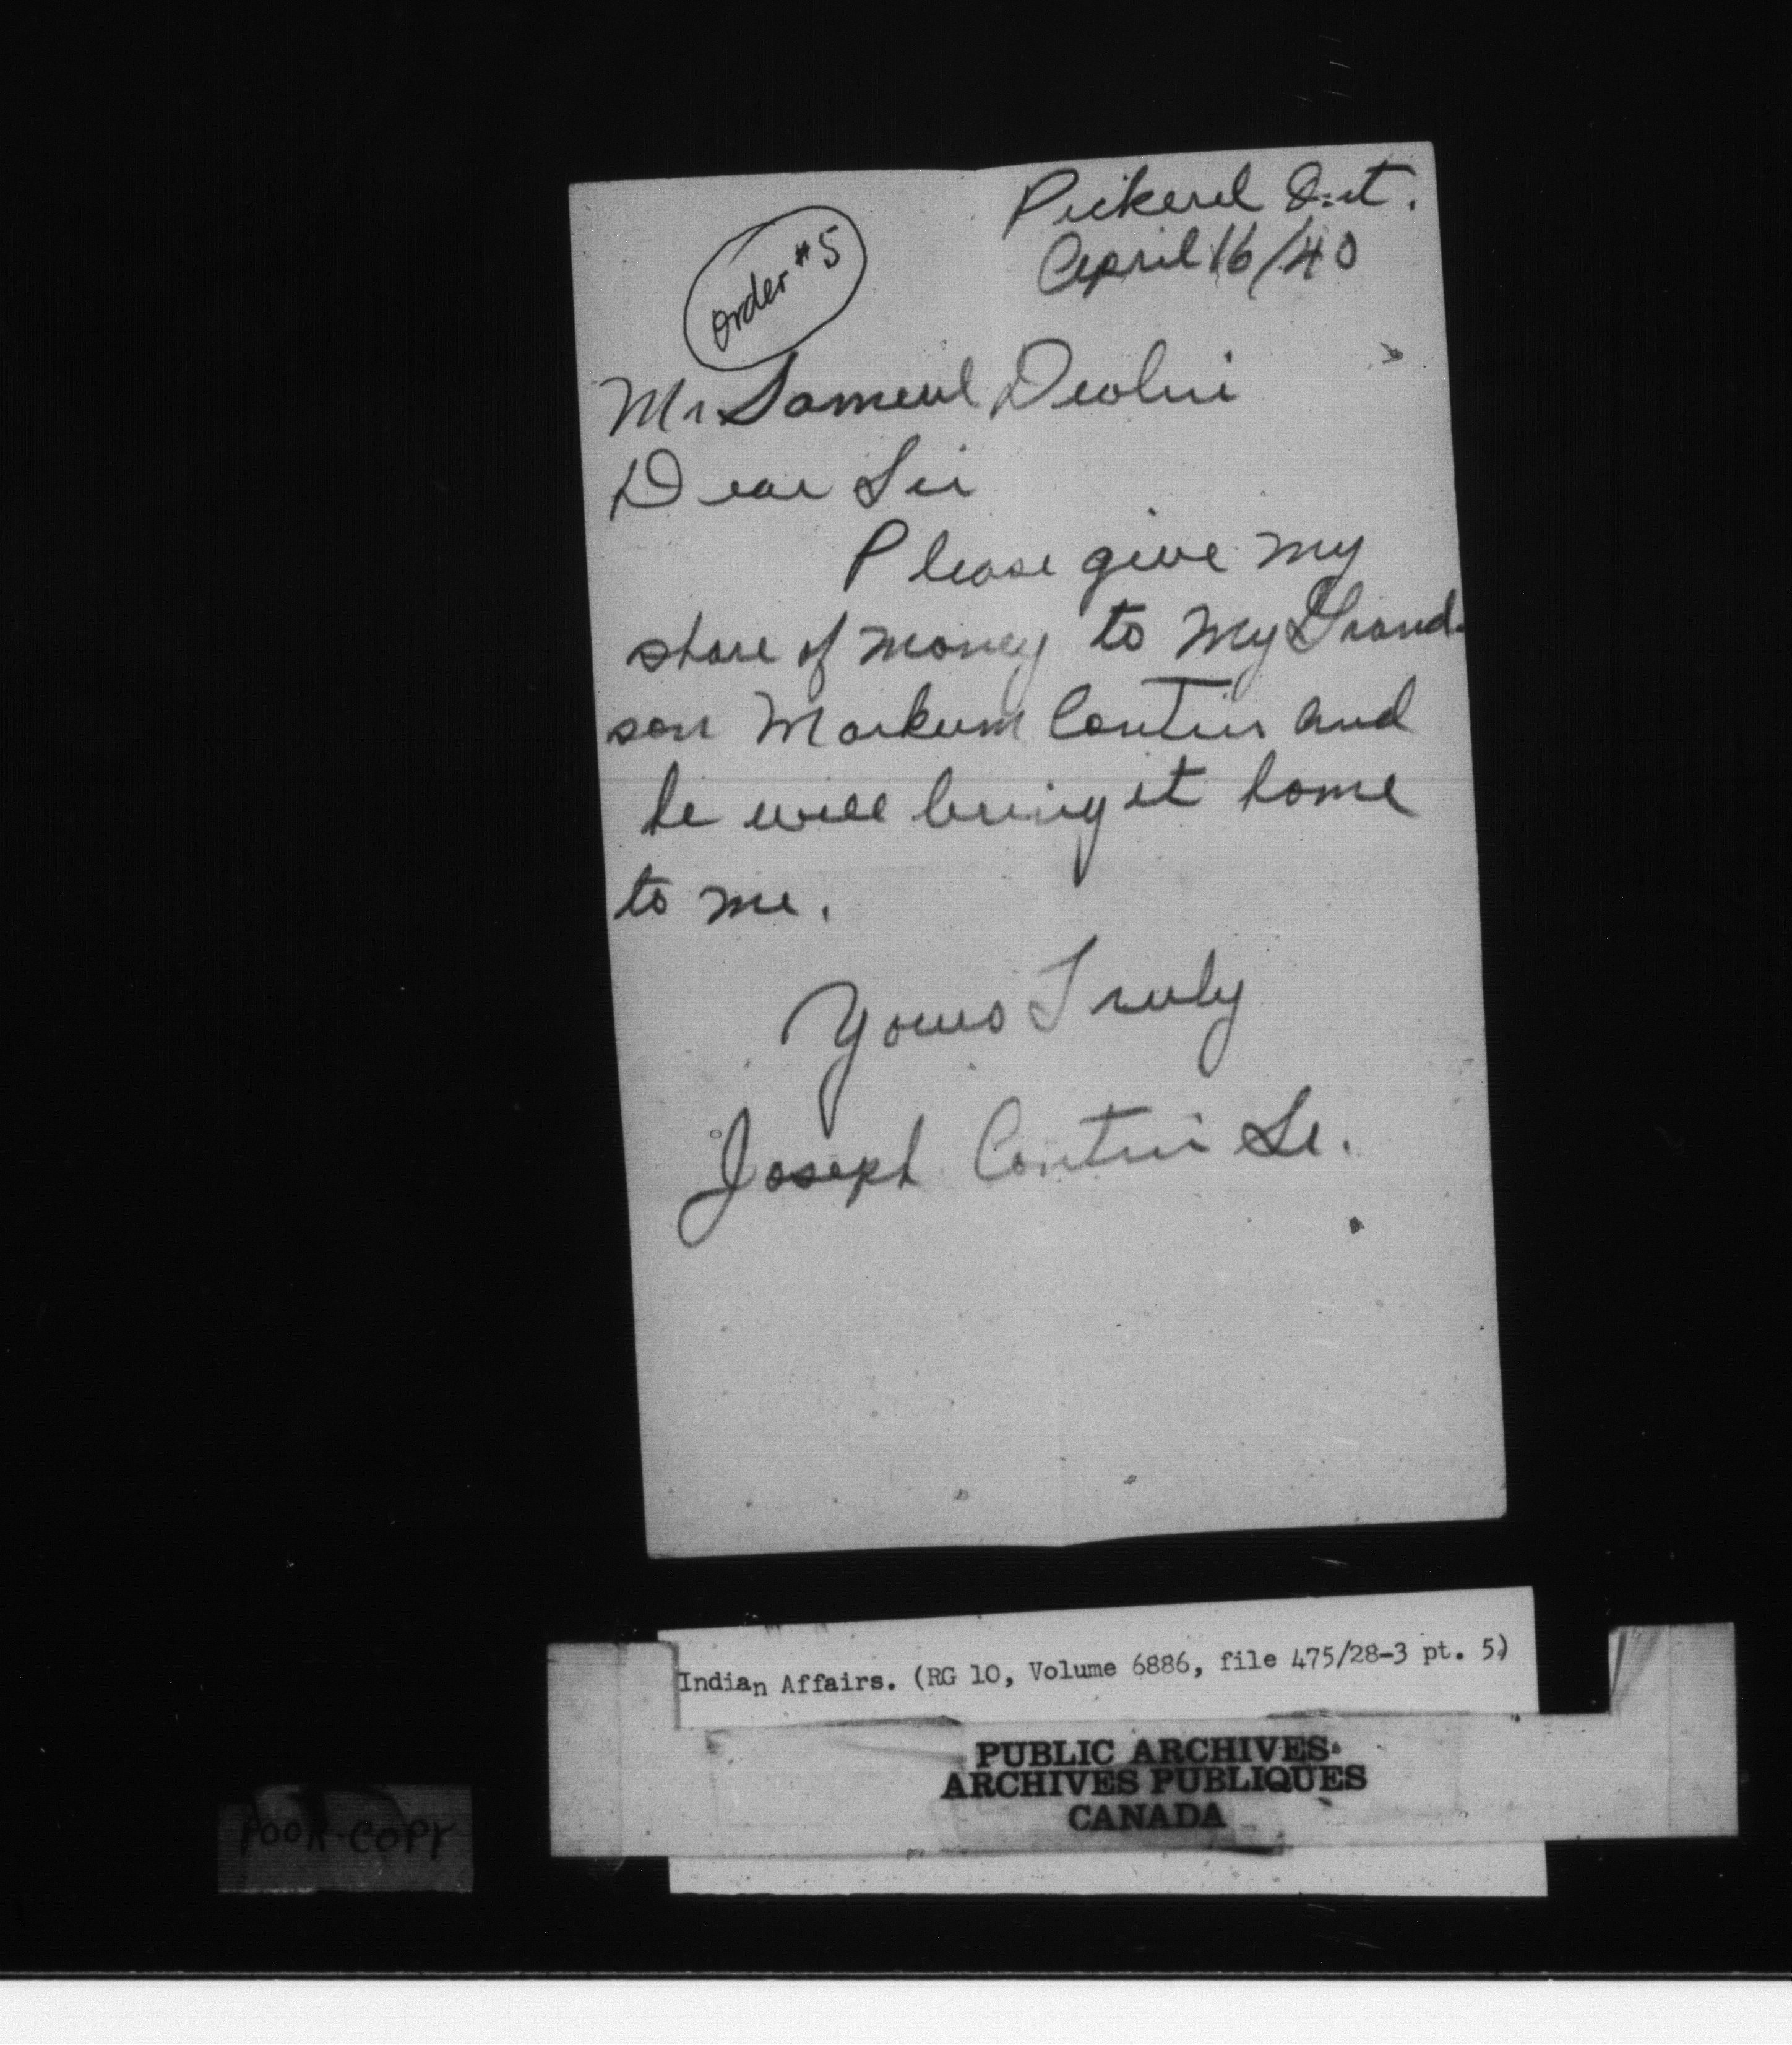 Pickerel Ont.
April 16/40
Order #5
Mr Sameul Devlin
Dear Sir
Please give my
share of money to my Grand-
son Markum Contin and
he will bring it home
to me.
Yours Truly
Joseph Contin Sr.
Indian Affairs. (RG 10, Volume 6886, file 475/28-3 pt. 5)
PUBLIC ARCHIVES
ARCHIVES PUBLIQUES
CANADA
POOR COPY